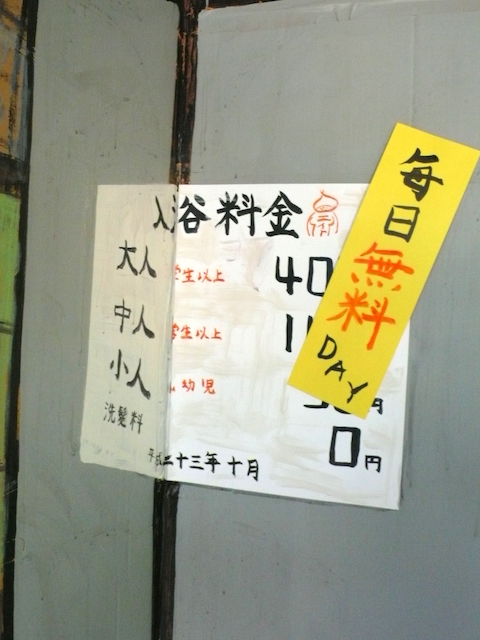 入浴料金
大人 学生以上 40
中人 学生以上 1
小人 幼児 円
洗髪料 0円
平成二十三年十月
毎日
無料
DAY